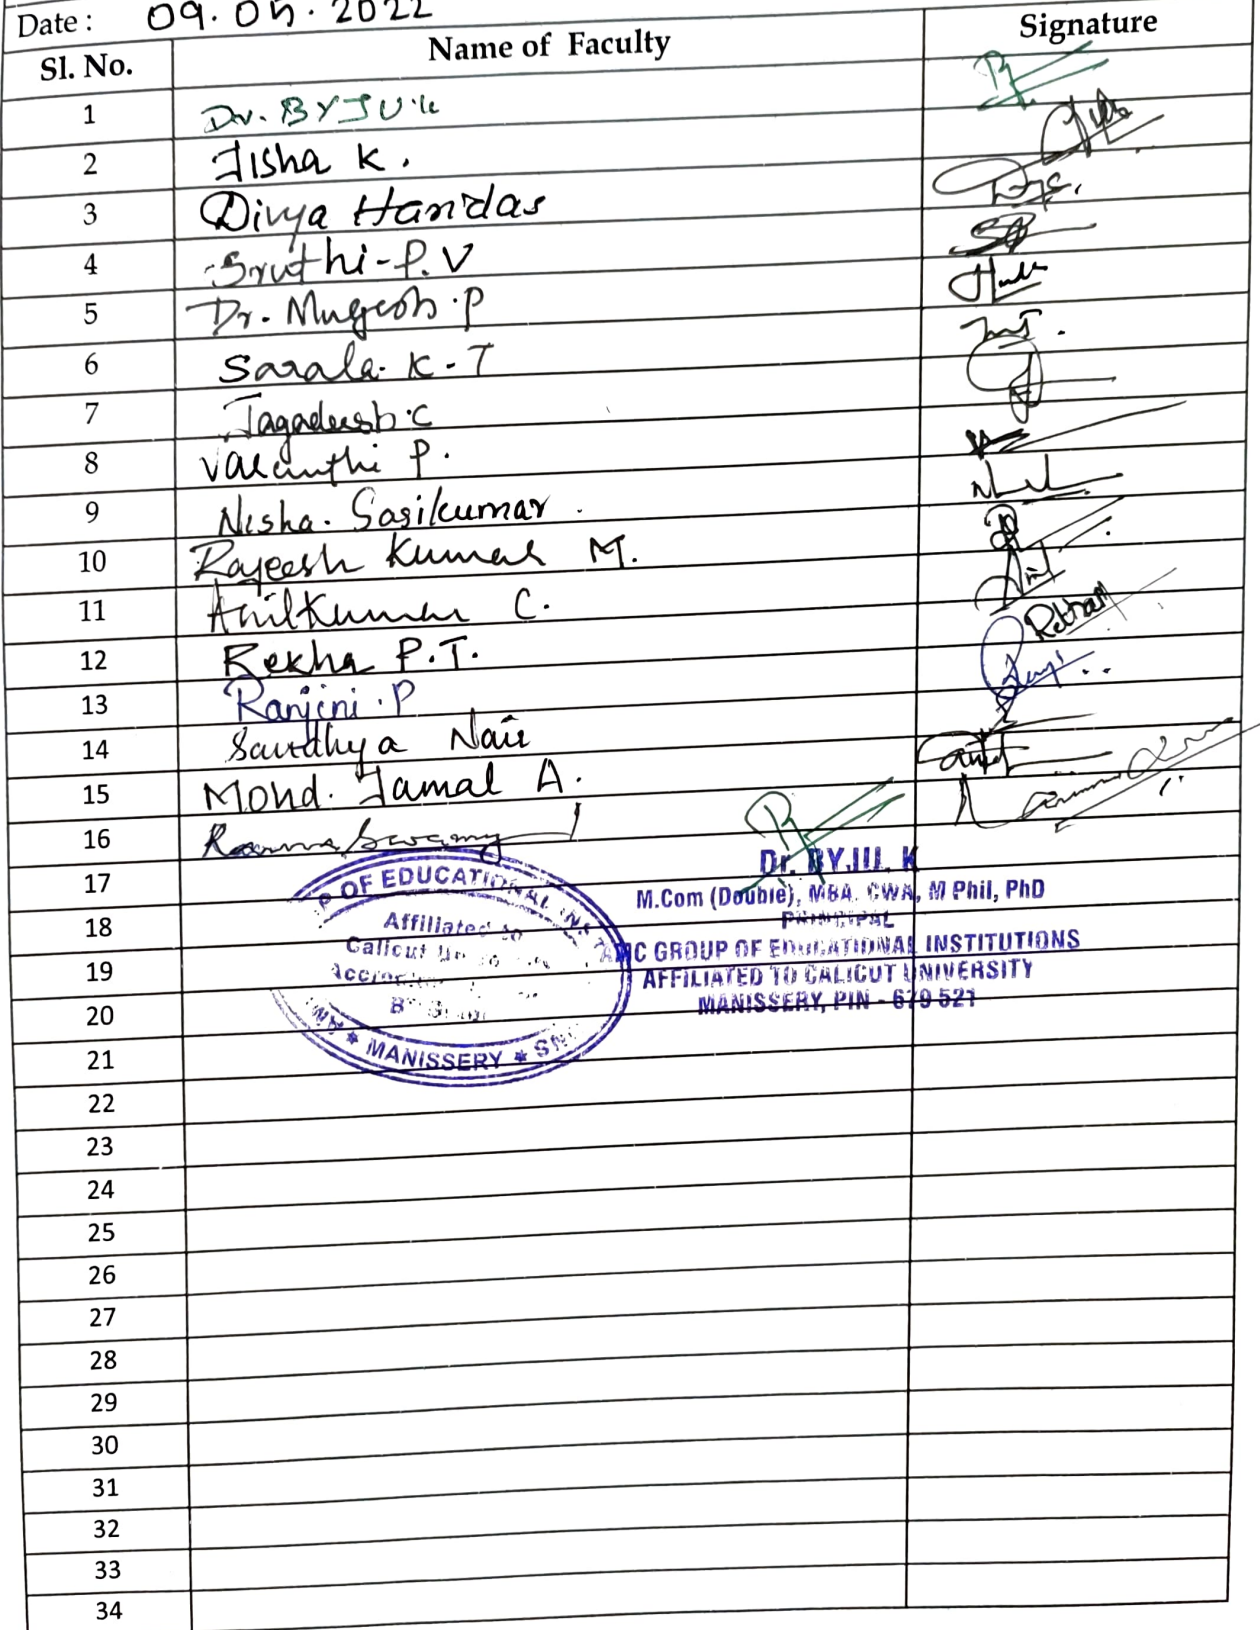 Date : 09.05.2022
Sl. No. Name of Faculty Signature
1 Dr. BYJU.K
2 Jisha K.
3 Divya Haridas
4 Sruthi-P.V
5 Dr. Mugesh.P
6 Sarala. K-T
7 Jagadeesh.C
8 Vasanthi P.
9 Nisha. Sasikumar.
10 Rajeesh Kumar M.
11 Anilkumar C.
12 Rekha P.T.
13 Ranjini.P
14 Sandhya Nair
15 Mohd. Jamal A.
16 Ramaswamy
17
18
19
20
21
22
23
24
25
26
27
28
29
30
31
32
33
34
P OF EDUCATIONAL INS
Affiliated to
Calicut
MANISSERY
Dr. BYJU. K
M.Com (Double), MBA, CWA, M Phil, PhD
PRINCIPAL
GROUP OF EDUCATIONAL INSTITUTIONS
AFFILIATED TO CALICUT UNIVERSITY
MANISSERY, PIN - 679 521